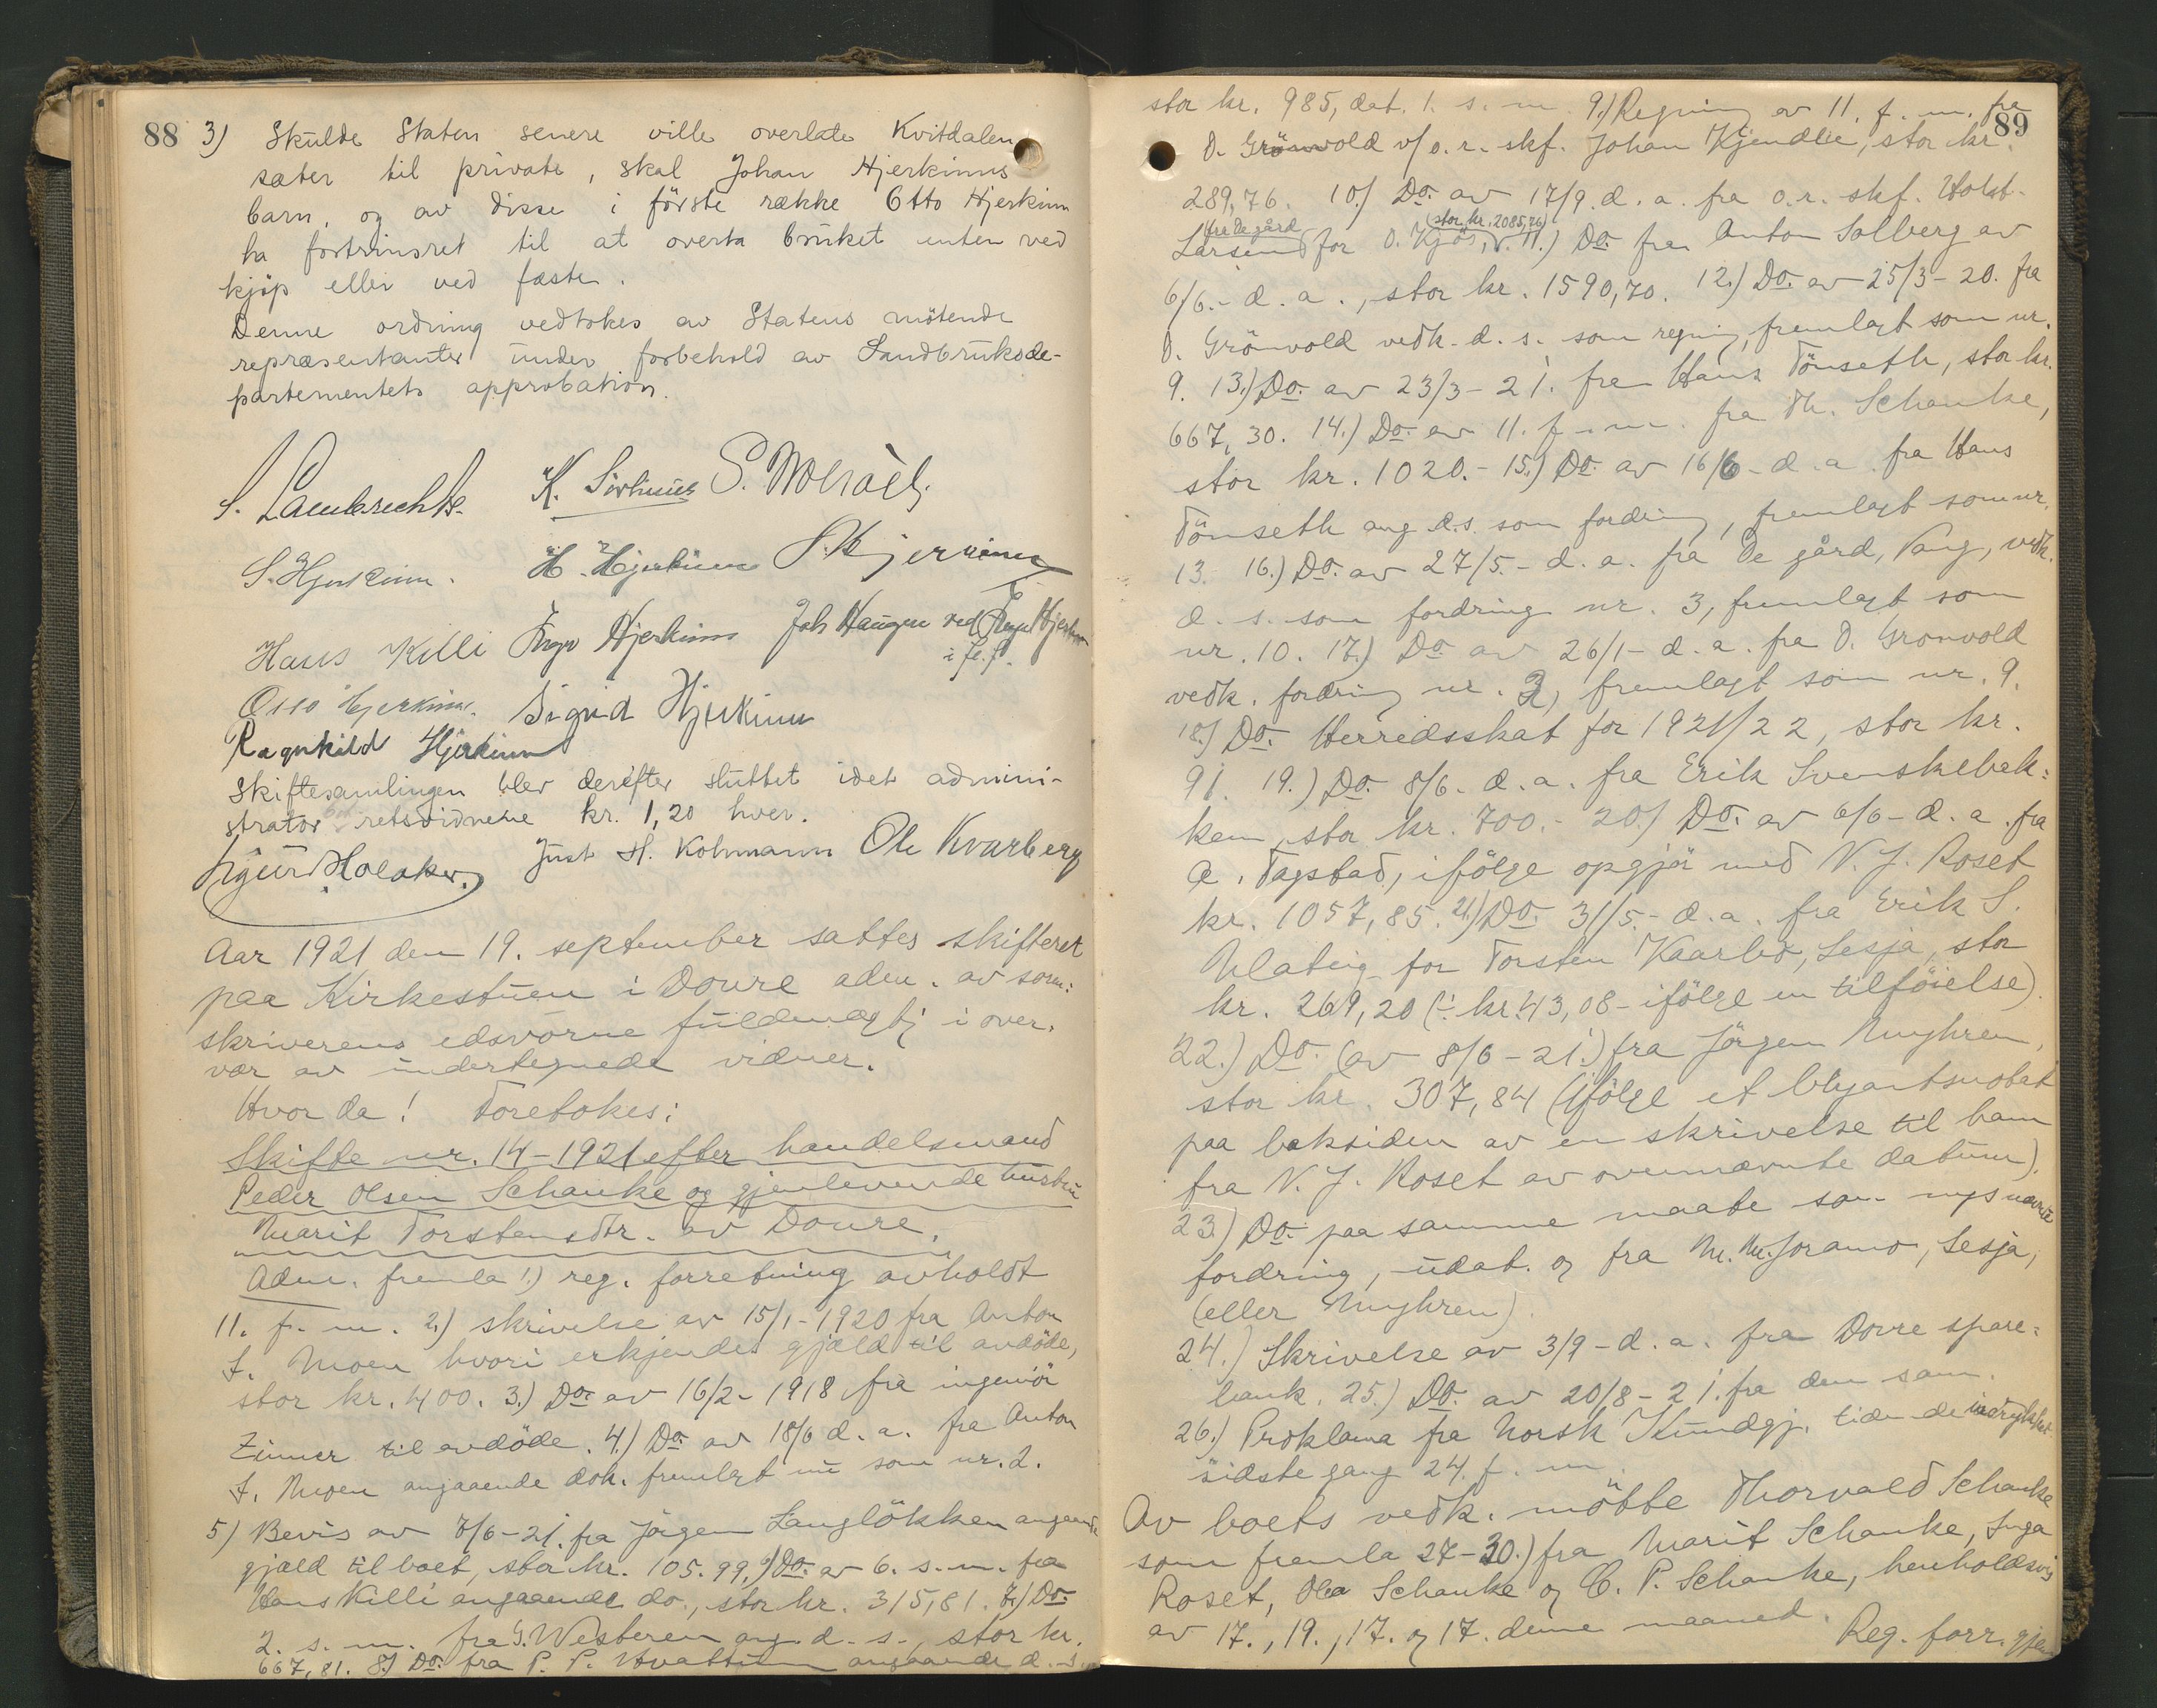 88
3) Skulde Staten senere ville overlate Kvitdalen
sæter til private, skal Johan Hjerkinns
barn, og av disse i første række Otto Hjerkinn
ha fortrinsret til at overta bruket enten ved
kjøp eller ved fæste.
Denne ordning vedtokes av Statens møtende
repræsentanter under forbehold av Landbruksde-
partementets approbation.
S. Lambrechts. K.
S. Hjerkinn. H. Hjerkinn
Hans Killi Inga Hjerkinn Joh Haugen ved Inga Hjerkinn
Otto Hjerkinn. Sigrid Hjerkinn
Ragnhild Hjerkinn
Skiftesamlingen blev derefter sluttet idet admini-
strator retsvidnene kr. 1,20 hver.
Sigurd Holaker. Just H. Kohmann Ole Kvarberg
Aar 1921 den 19. september sattes skifteret
paa Kirkestuen i Dovre adm. av soren-
skriverens edsvorne fuldmægtig i over-
vær av undertegnede vidner.
Hvor da! Foretokes:
Skifte nr. 14-1921 efter handelsmand
Peder Olsen Schanke og gjenlevende hustru
Marit Torstensdtr. av Dovre.
Adm. fremla 1.) reg. forretning avholdt
11. f. m. 2.) skrivelse av 15/1-1920 fra Anton
J. Moen hvori erkjendes gjæld til avdøde,
stor kr. 400. 3.) Do. av 16/2-1918 fra ingeniør
Zimmer til avdøde. 4.) Do. av 18/6 d. a. fra Anton
J. Moen angaaende dok. fremlagt nu som nr. 2.
5) Bevis av 7/6-21. fra Jörgen Langlökken angaaende
gjæld til boet, stor kr. 105.99. 6.) Do. av 6. s. m. fra
Hans Killi angaaende do., stor kr. 315,81. 7.) Do.
2. s. m. fra G. Westeren ang. d. s., stor kr.
667,81. 8.) Do. fra P. P. angaaende d. s.
89
stor kr. 985, dat. 1. s. m. 9.) Regning av 11. f. m. fra
O. Grönvold v/ o. r. skf. Johan Kjendlie, stor kr.
289,76. 10.) Do. av 17/9. d. a. fra o. r. skf. Holst-
fra De gård (stor kr. 2085,76)
Larsen for O. Kjös, 11.) Do. fra Anton Solberg av
6/6.- d. a., stor kr. 1590,70. 12.) Do. av 25/3-20. fra
O. Grönvold vedk. d. s. som regning, fremlagt som nr.
9. 13.) Do. av 23/3-21. fra Hans Tönseth, stor kr.
667,30. 14.) Do. av 11. f. m. fra Th. Schanke,
stor kr. 1020.- 15.) Do. av 16/6- d. a. fra Hans
Tönseth ang. d. s. som fordring, fremlagt som nr.
13. 16.) Do. av 27/5.- d. a. fra De gård, Vang, vedk.
d. s. som fordring nr. 3, fremlagt som
nr. 10. 17.) Do. av 26/1- d. a. fra O. Grönvold
vedk. fordring nr. 2, fremlagt som nr. 9.
18.) Do. Herredsskat for 1921/22, stor kr.
91. 19.) Do. 8/6. d. a. fra Erik Svenskebak-
ken, stor kr. 700.- 20.) Do. av 6/6- d. a. fra
A. Tagstad, ifölge opgjör med N. J. Roset
kr. 1057,85. 21.) Do. 31/5.- d. a. fra Erik S.
Ulateig for Torsten Kaarbö, Lesja, stor
kr. 269,20 (÷ kr. 43,08- ifölge en tilföielse).
22.) Do. (av 8/6-21.) fra Jörgen Muyhren,
stor kr. 307,84 (ifölge et blyantsnotat
paa baksiden av en skrivelse til ham
fra N. J. Roset av ovennævnte datum).
23.) Do. paa samme maate som nysnævnte
fordring, udat. og fra M. M. Joramo, Lesja,
(eller Muyhren).
24.) Skrivelse av 3/9- d. a. fra Dovre spare-
bank. 25.) Do. av 20/8-21. fra den sam.
26.) Proklama fra Norsk Kundgj. tidende indrykket
sidste gang 24. f. m.
Av boets vedk. mötte Thorvald Schanke
som fremla 27-30.) fra Marit Schanke, Inga
Roset, Ola Schanke og C. P. Schanke, henholdsvis
av 17., 19., 17. og 17. denne maaned. Reg. forr. gjen